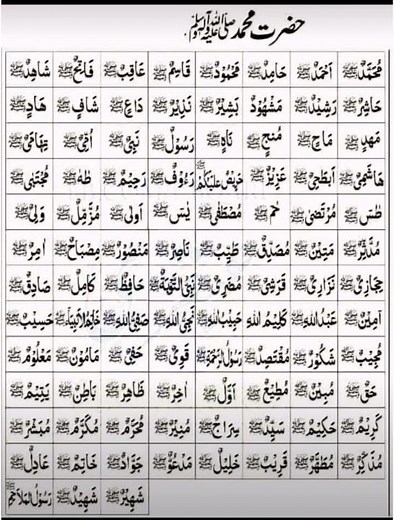 حضرت محمد صلی اللہ علیہ وآلہ وسلم
مُحَمَّدٌ ﷺ اَحْمَدُ ﷺ حَامِدٌ ﷺ مَحْمُودٌ ﷺ قَاسِمٌ ﷺ عَاقِبٌ ﷺ فَاتِحٌ ﷺ شَاهِدٌ ﷺ
حَاشِرٌ ﷺ رَشِیْدٌ ﷺ مَشْهُوْدٌ ﷺ بَشِیْرٌ ﷺ نَذِیْرٌ ﷺ دَاعٍ ﷺ شَافٍ ﷺ هَادٍ ﷺ
مَهْدٍ ﷺ مَاحٍ ﷺ مُنْجٍ ﷺ نَاهٍ ﷺ رَسُوْلٌ ﷺ نَبِیٌّ ﷺ اُمِّیٌّ ﷺ تِهَامِیٌّ ﷺ
هَاشِمِیٌّ ﷺ اَبْطَحِیٌّ ﷺ عَزِیْزٌ ﷺ حَرِیْصٌ عَلَیْکُمْ ﷺ رَءُوْفٌ ﷺ رَحِیْمٌ ﷺ طٰهٰ ﷺ مُجْتَبٰی ﷺ
طٰسٓ ﷺ مُرْتَضٰی ﷺ حٰمٓ ﷺ مُصْطَفٰی ﷺ یٰسٓ ﷺ اَوْلٰی ﷺ مُزَّمِّلٌ ﷺ وَلِیٌّ ﷺ
مُدَّثِّرٌ ﷺ مَتِیْنٌ ﷺ مُصَدِّقٌ ﷺ طَیِّبٌ ﷺ نَاصِرٌ ﷺ مَنْصُوْرٌ ﷺ مِصْبَاحٌ ﷺ اٰمِرٌ ﷺ
حِجَازِیٌّ ﷺ نَزَارِیٌّ ﷺ قَرَشِیٌّ ﷺ مُضَرِیٌّ ﷺ نَبِیُّ التَّوْبَةِ ﷺ حَافِظٌ ﷺ کَامِلٌ ﷺ صَادِقٌ ﷺ
اَمِیْنٌ ﷺ عَبْدُ اللهِ ﷺ کَلِیْمُ اللهِ ﷺ حَبِیْبُ اللهِ ﷺ نَجِیُّ اللهِ ﷺ صَفِیُّ اللهِ ﷺ خَاتَمُ الْاَنْبِیَاءِ ﷺ حَسِیْبٌ ﷺ
مُجِیْبٌ ﷺ شَکُوْرٌ ﷺ مُقْتَصِدٌ ﷺ رَسُوْلُ الرَّحْمَةِ ﷺ قَوِیٌّ ﷺ حَفِیٌّ ﷺ مَامُوْنٌ ﷺ مَعْلُوْمٌ ﷺ
حَقٌّ ﷺ مُبِیْنٌ ﷺ مُطِیْعٌ ﷺ اَوَّلٌ ﷺ اٰخِرٌ ﷺ ظَاهِرٌ ﷺ بَاطِنٌ ﷺ یَتِیْمٌ ﷺ
کَرِیْمٌ ﷺ حَکِیْمٌ ﷺ سَیِّدٌ ﷺ سِرَاجٌ ﷺ مُنِیْرٌ ﷺ مُحَرَّمٌ ﷺ مُکَرَّمٌ ﷺ مُبَشِّرٌ ﷺ
مُذَکِّرٌ ﷺ مُطَهَّرٌ ﷺ قَرِیْبٌ ﷺ خَلِیْلٌ ﷺ مَدْعُوٌّ ﷺ جَوَّادٌ ﷺ خَاتِمٌ ﷺ عَادِلٌ ﷺ
شَهِیْرٌ ﷺ شَهِیْدٌ ﷺ رَسُوْلُ الْمَلَاحِمِ ﷺ